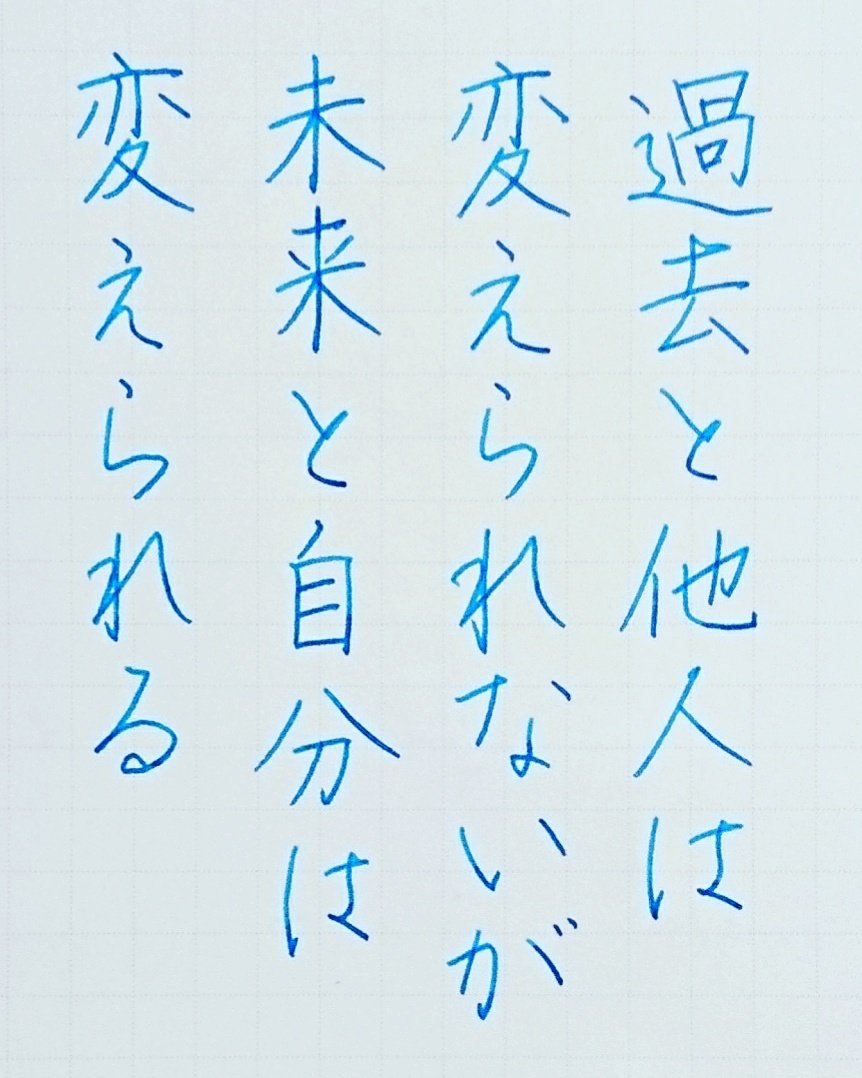 過去と他人は
変えられないが
未来と自分は
変えられる